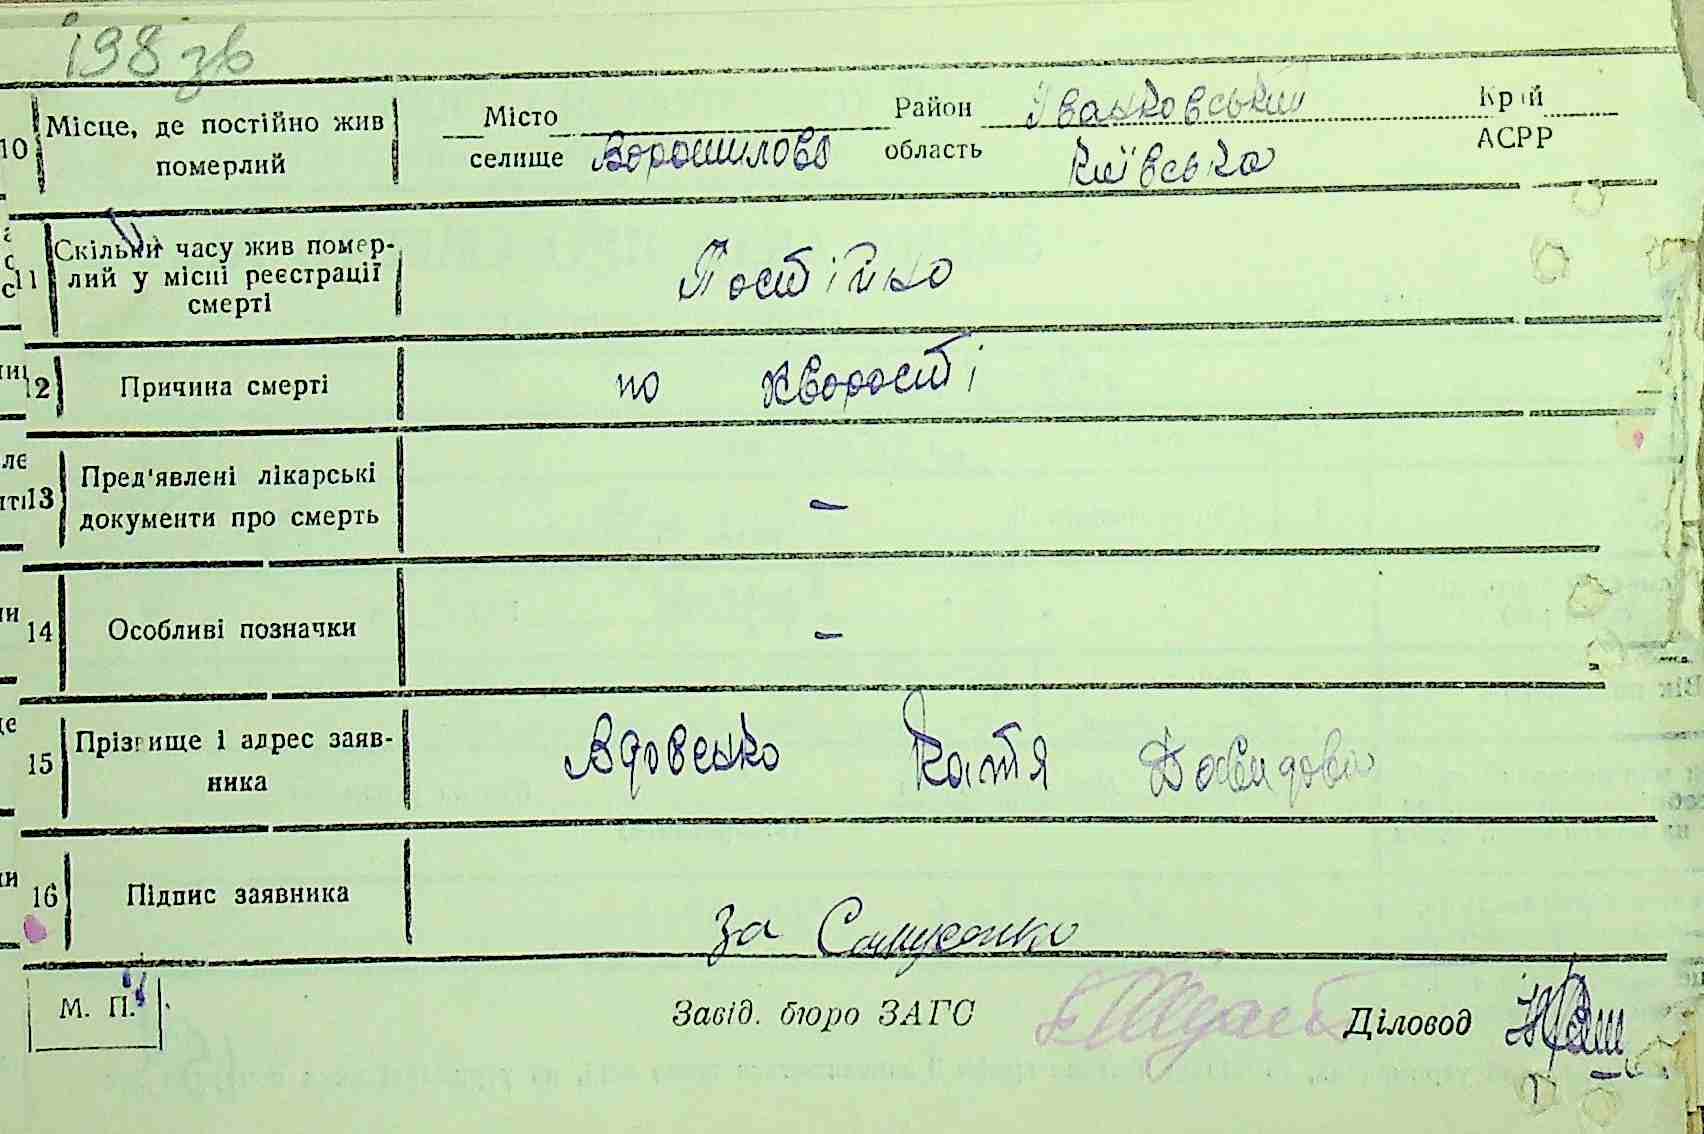 198 зв
10 Місце, де постійно жив померлий
Місто Район Іванковський Край
селище Ворошилово область Київська АСРР
11 Скільки часу жив померлий у місці реєстрації смерті
Постійно
12 Причина смерті по хворості
13 Пред'явлені лікарські документи про смерть –
14 Особливі позначки –
15 Прізвище і адрес заявника
Вдовенко Катя Давидова
16 Підпис заявника
за Самусенко
М. П. Завід. бюро ЗАГС Діловод